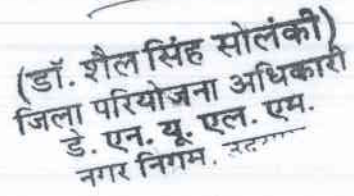 (डॉ. शैल सिंह सोलंकी)
जिला परियोजना अधिकारी
डे. एन. यू. एल. एम.
नगर निगम,